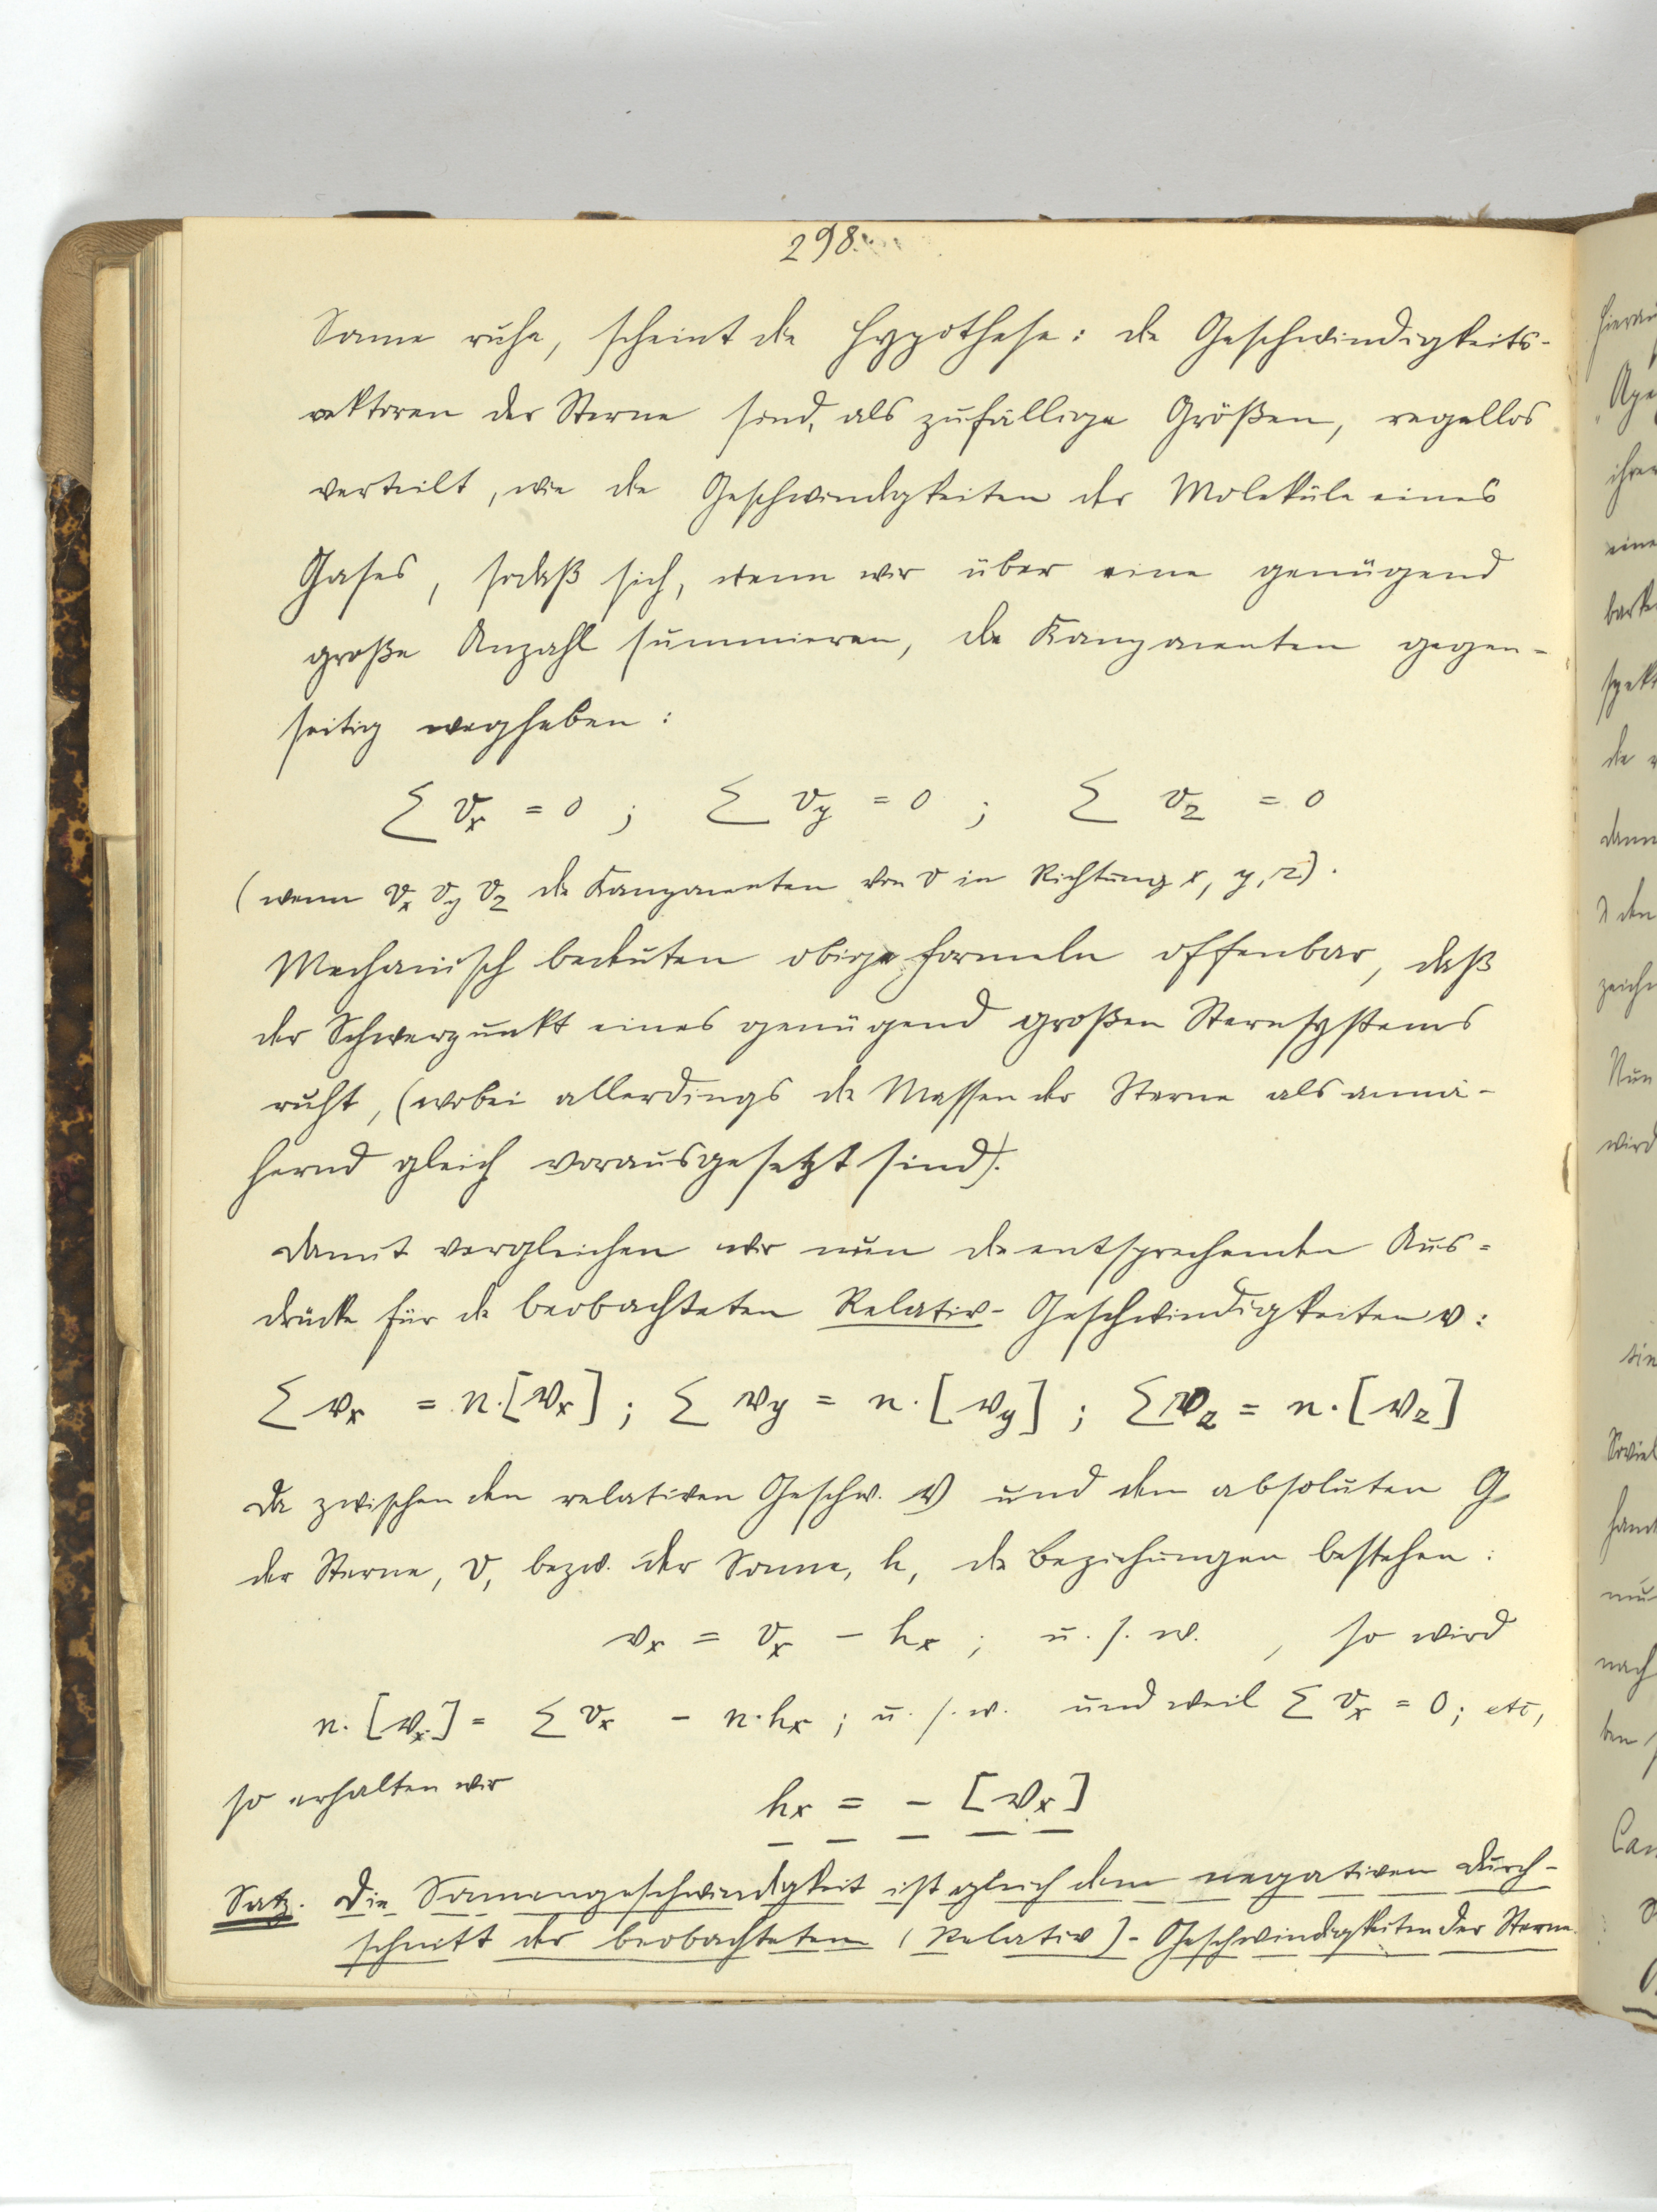 298.
Sonne ruhe, scheint die Hypothese: die Geschwindigkeits-
vektoren der Sterne sind, als zufällige Größen, regellos
verteilt, wie die Geschwindigkeiten der Moleküle eines
Gases, sodaß sich, wenn wir über eine genügend
große Anzahl summieren, die Komponenten gegen-
seitig wegheben:
Σ v_x = 0 ; Σ v_y = 0 ; Σ v_z = 0
(wenn v_x v_y v_z die Komponenten von v in Richtung x, y, z).
Mechanisch bedeuten obige Formeln offenbar, daß
der Schwerpunkt eines genügend großen Sternsystems
ruht, (wobei allerdings die Massen der Sterne als annä-
hernd gleich vorausgesetzt sind).
Damit vergleichen wir nun die entsprechenden Aus=
drücke für die beobachteten Relativ-Geschwindigkeiten v:
Σ v_x = n·[v_x] ; Σ v_y = n·[v_y] ; Σ v_z = n·[v_z]
Da zwischen den relativen Geschw. v und den absoluten G
der Sterne, v, bezw. der Sonne, h, die Beziehungen bestehen:
v_x = v_x − h_x ; u. s. w. , so wird
n·[v_x] = Σ v_x − n·h_x ; u. s. w. und weil Σ v_x = 0; etc,
so erhalten wir h_x = − [v_x]
Satz. Die Sonnengeschwindigkeit ist gleich dem negativen Durch-
schnitt der beobachteten (Relativ)-Geschwindigkeiten der Sterne.